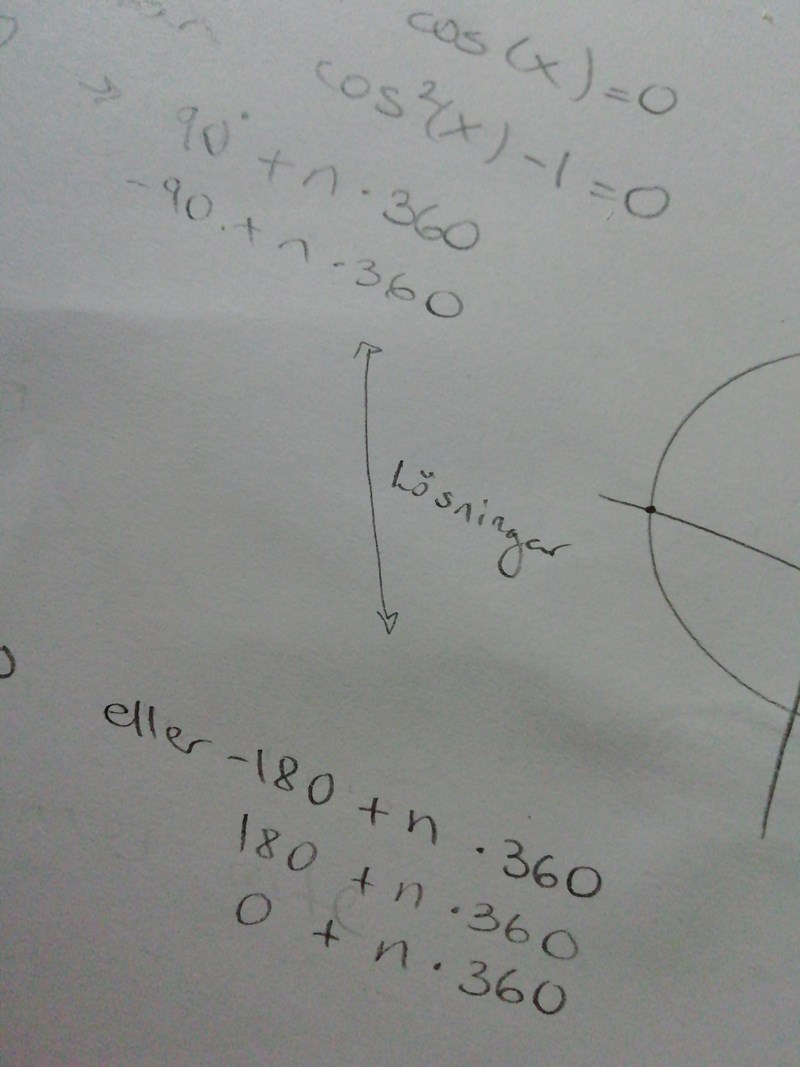 cos(x)=0
cos²(x)-1=0
90° + n · 360
-90 + n · 360
Lösningar
eller -180 + n · 360
180 + n · 360
0 + n · 360